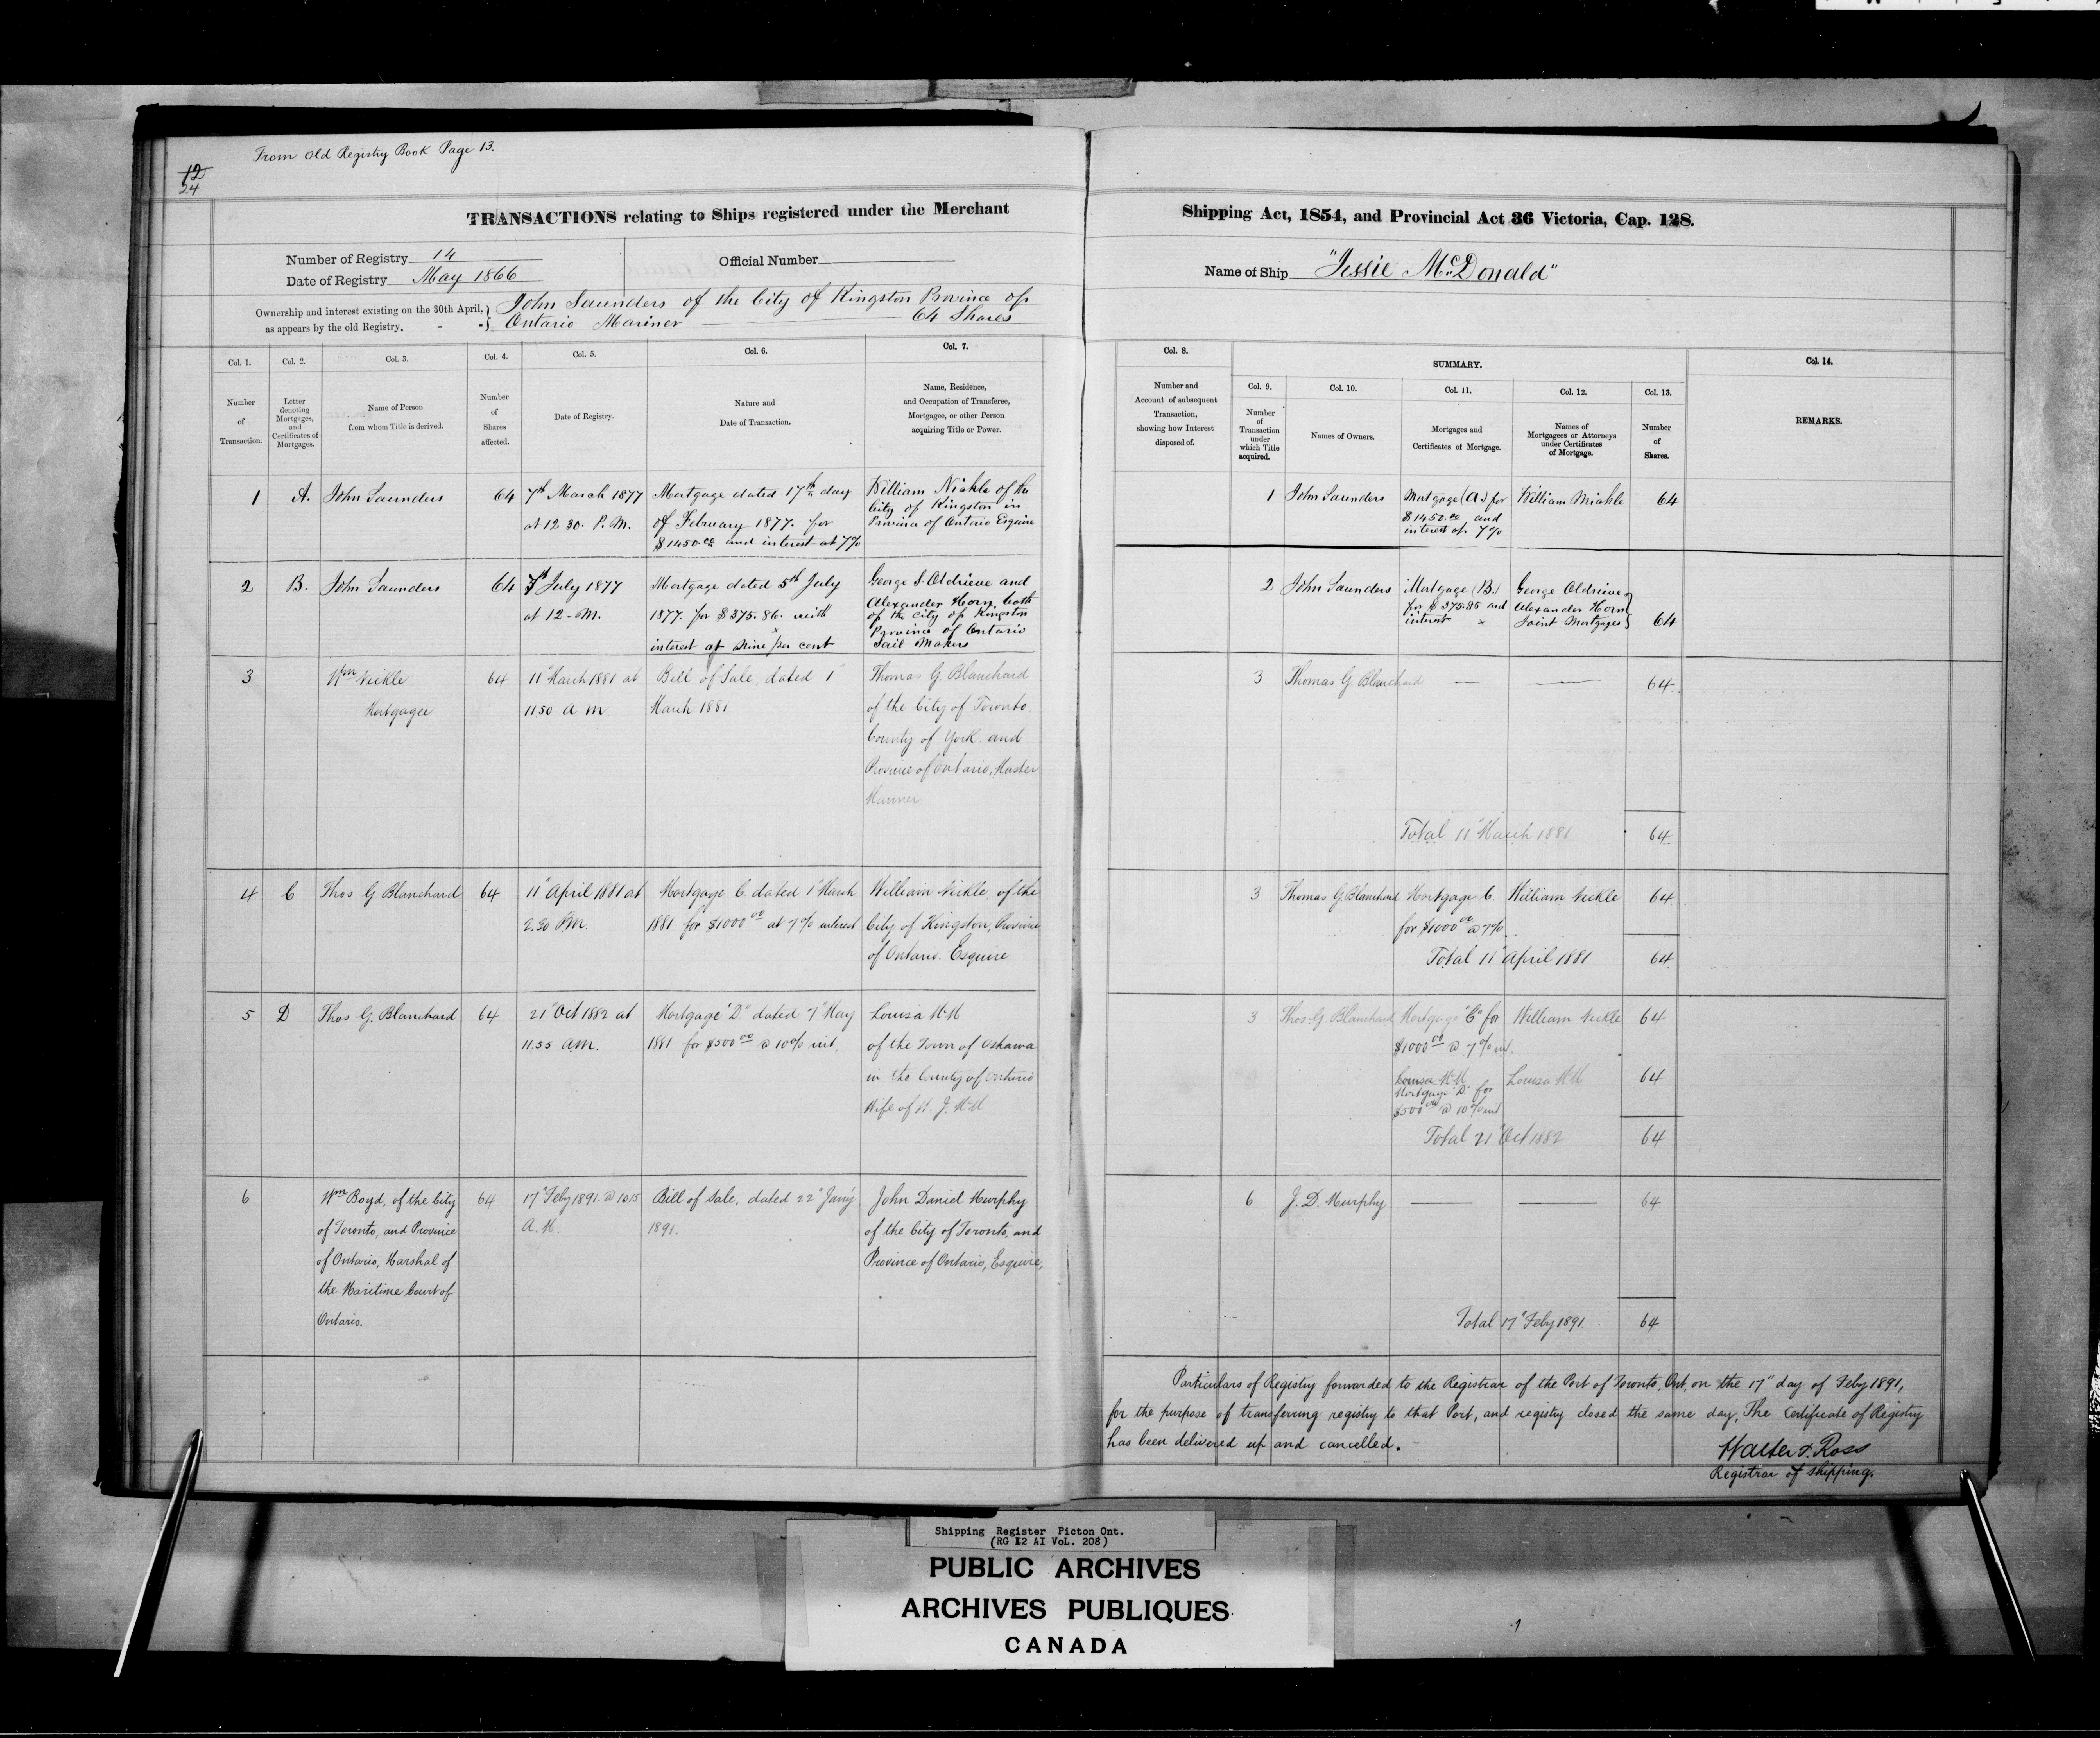 From Old Registry Book Page 13.
12
24
TRANSACTIONS relating to Ships registered under the Merchant
Shipping Act, 1854, and Provincial Act 36 Victoria, Cap. 128.
Number of Registry 14
Date of Registry May 1866
Official Number
Name of Ship "Jessie McDonald"
Ownership and interest existing on the 30th April, } John Saunders of the City of Kingston Province of
as appears by the old Registry. - - } Ontario Mariner 64 Shares
Col. 1.
Number
of
Transaction.
Col. 2.
Letter
denoting
Mortgages,
and
Certificates of
Mortgages.
Col. 3.
Name of Person
from whom Title is derived.
Col. 4.
Number
of
Shares
affected.
Col. 5.
Date of Registry.
Col. 6.
Nature and
Date of Transaction.
Col. 7.
Name, Residence,
and Occupation of Transferee,
Mortgagee, or other Person
acquiring Title or Power.
Col. 8.
Number and
Account of subsequent
Transaction,
showing how Interest
disposed of.
SUMMARY.
Col. 9.
Number
of
Transaction
under
which Title
acquired.
Col. 10.
Names of Owners.
Col. 11.
Mortgages and
Certificates of Mortgage.
Col. 12.
Names of
Mortgagees or Attorneys
under Certificates
of Mortgage.
Col. 13.
Number
of
Shares.
Col. 14.
REMARKS.
1
A.
John Saunders
64
7th March 1877
at 12 30. P.M.
Mortgage dated 17th day
of February 1877. for
$1450.00 and interest at 7%
William Nickle of the
City of Kingston in
Province of Ontario Esquire
1
John Saunders
Mortgage (A.) for
$1450.00 and
interest of 7%
William Nickle
64
2
B.
John Saunders
64
July 1877
at 12 - M.
Mortgage dated 5th July
1877. for $375.86. with
interest at nine per cent
George S. Oldrieve and
Alexander Horn, both
of the City of Kingston
Province of Ontario
Sail Makers
2
John Saunders
Mortgage (B.)
for $375.85 and
interest x
George Oldrieve
Alexander Horn
Joint Mortgages
64
3
Wm Nickle
Mortgagee
64
11" March 1881 at
11.50 a m
Bill of Sale, dated 1"
March 1881
Thomas G. Blanchard
of the City of Toronto,
County of York and
Province of Ontario, Master
Mariner
3
Thomas G. Blanchard
64
Total 11" March 1881
64
4
C
Thos G Blanchard
64
11" April 1881 at
2.30 P.M.
Mortgage C dated 1" March
1881 for $1000 00 at 7% interest
William Nickle, of the
City of Kingston, Province
of Ontario. Esquire
3
Thomas G. Blanchard
Mortgage C.
for $1000 00 @ 7%
William Nickle
64
Total 11" April 1881
64
5
D
Thos G. Blanchard
64
21" Oct 1882 at
11.55 a.m.
Mortgage "D" dated 7" May
1881 for $500 00 @ 10% int.
Louisa
of the Town of Oshawa
in the County of Ontario
Wife of
3
Thos. G. Blanchard
Mortgage "C" for
$1000 00 @ 7% int.
William Nickle
64
Louisa
Mortgage "D" for
$500 00 @ 10% int
Louisa
64
Total 21" Oct 1882
64
6
Wm Boyd, of the City
of Toronto, and Province
of Ontario, Marshal of
the Maritime Court of
Ontario.
64
17" Feby 1891. @ 10.15
A.M.
Bill of Sale, dated 22" Jany
1891.
John Daniel Murphy
of the City of Toronto, and
Province of Ontario, Esquire,
6
J. D. Murphy
64
Total 17" Feby 1891.
64
Particulars of Registry forwarded to the Registrar of the Port of Toronto, Ont, on the 17" day of Feby 1891,
for the purpose of transferring registry to that Port, and registry closed the same day, The Certificate of Registry
has been delivered up and cancelled.
Walter T. Ross
Registrar of Shipping.
Shipping Register Picton Ont.
(RG 12 AI VoL. 208)
PUBLIC ARCHIVES
ARCHIVES PUBLIQUES
CANADA